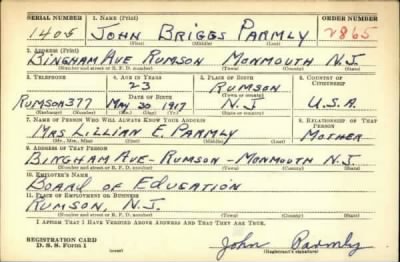 SERIAL NUMBER 1. NAME (Print) ORDER NUMBER
1405 JOHN BRIGGS PARMLY 2865
(First) (Middle) (Last)
2. ADDRESS (Print)
BINGHAM AVE RUMSON MONMOUTH N.J.
(Number and street or R. F. D. number) (Town) (County) (State)
3. TELEPHONE 4. AGE IN YEARS 5. PLACE OF BIRTH 6. COUNTRY OF CITIZENSHIP
23 RUMSON
DATE OF BIRTH (Town or county)
RUMSON 377 MAY 30 1917 N.J. U.S.A.
(Exchange) (Number) (Mo.) (Day) (Yr.) (State or country)
7. NAME OF PERSON WHO WILL ALWAYS KNOW YOUR ADDRESS 8. RELATIONSHIP OF THAT PERSON
MRS LILLIAN E. PARMLY MOTHER
(Mr., Mrs., Miss) (First) (Middle) (Last)
9. ADDRESS OF THAT PERSON
BINGHAM AVE - RUMSON - MONMOUTH N.J.
(Number and street or R. F. D. number) (Town) (County) (State)
10. EMPLOYER'S NAME
BOARD OF EDUCATION
11. PLACE OF EMPLOYMENT OR BUSINESS
RUMSON, N.J.
(Number and street or R. F. D. number) (Town) (County) (State)
I AFFIRM THAT I HAVE VERIFIED ABOVE ANSWERS AND THAT THEY ARE TRUE.
REGISTRATION CARD
D. S. S. Form 1 (over) John Parmly
(Registrant's signature)